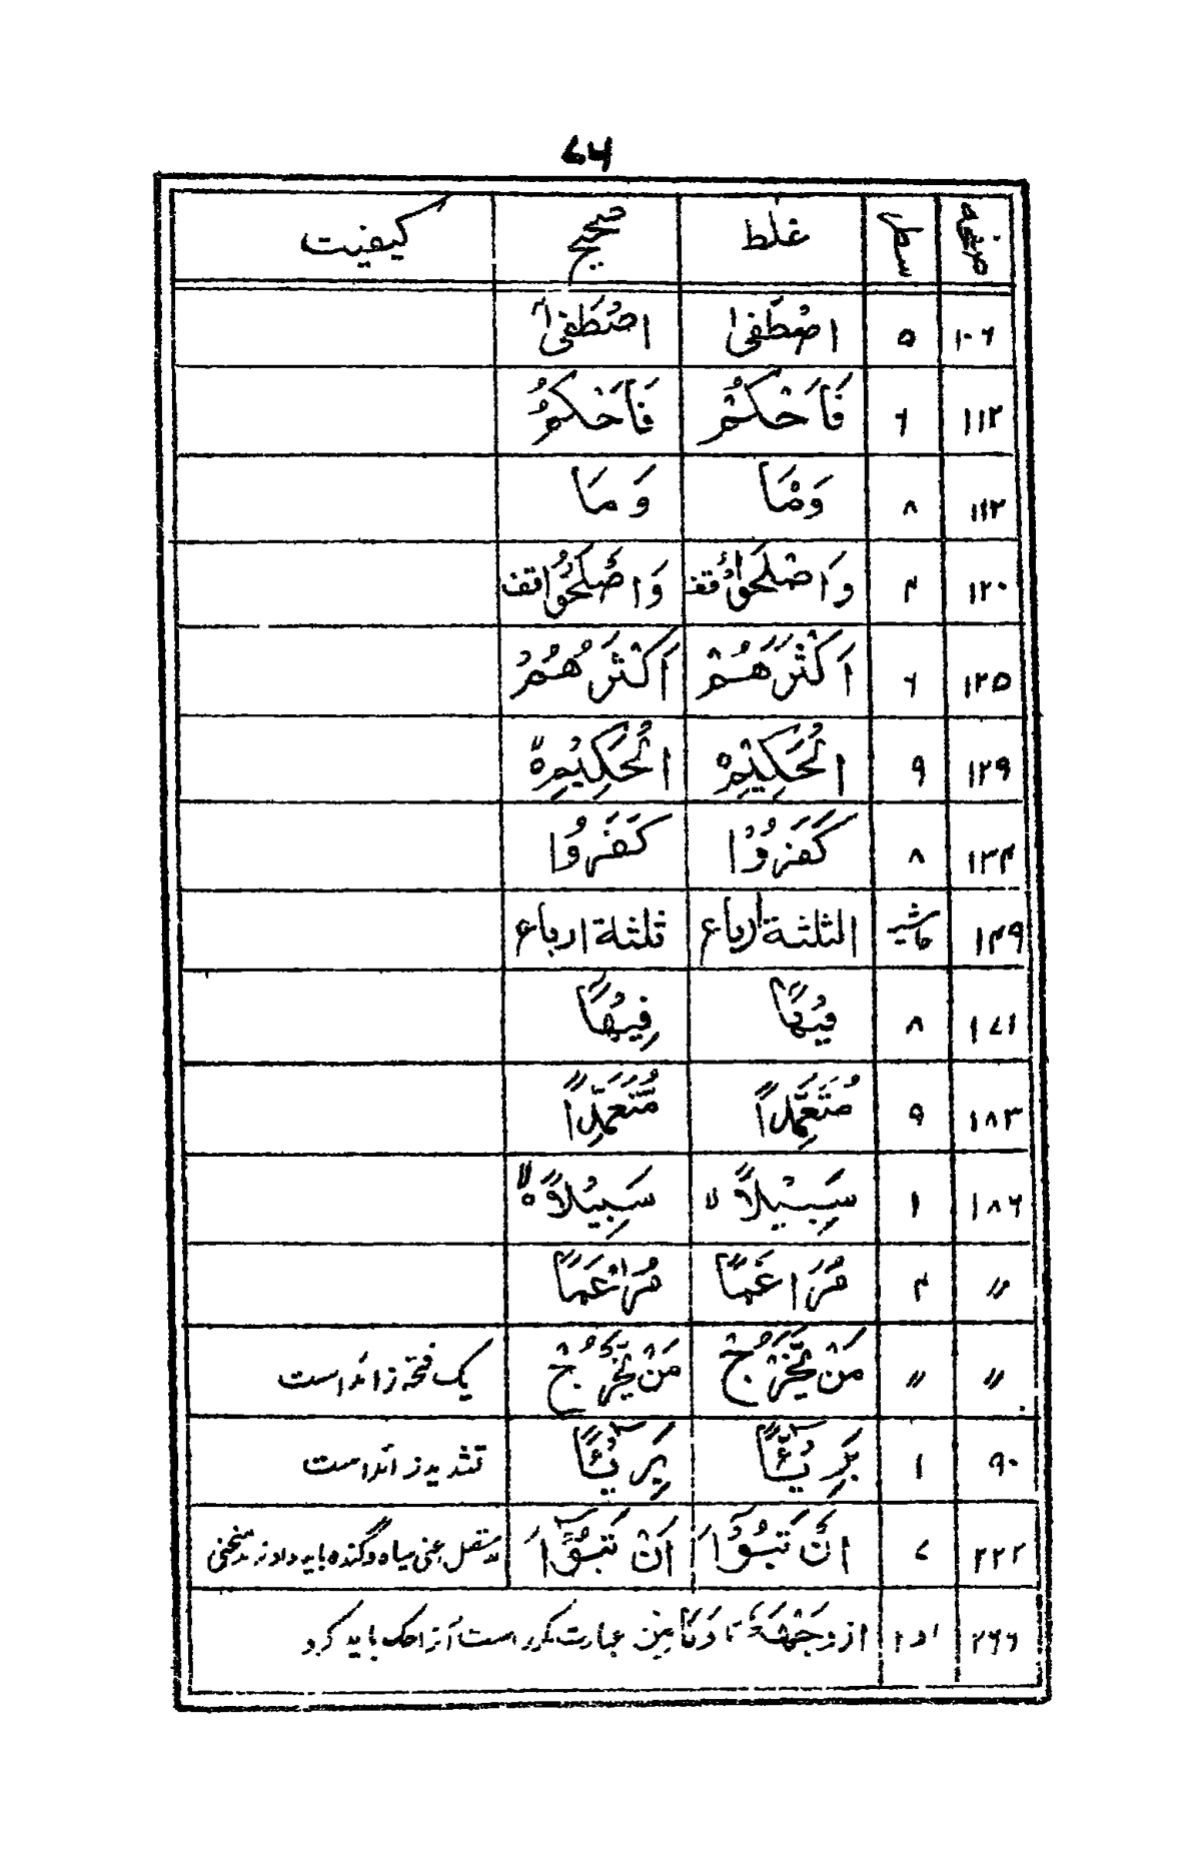 ۷۶
صفحہ سطر غلط صحیح کیفیت
۱۰۶ ۵ اصْطَفٰی اصْطَفٰی
۱۱۲ ۶ فَاَحْکُمْ فَاَحْکُمُ
۱۱۳ ۸ وَمْاَ وَمَا
۱۲۰ ۴ وَاَصْلَحُوْا قف وَاَصْلَحُوْا قف
۱۲۵ ۶ اَکْثَرَهُمْ اَکْثَرَهُمُ
۱۲۹ ۹ الْحَکِیْمِ۝ الْحَکِیْمِ۝
۱۳۴ ۸ کَفَرُوْا کَفَرُوْا
۱۴۹ حاشیہ الثلثة ارباع ثلثة ارباع
۱۷۱ ۸ فِیْهَا فِیْهَا
۱۸۳ ۹ مُتَعَمِّدًا مُّتَعَمِّدًا
۱۸۶ ۱ سَبِیْلًا۝ لا سَبِیْلًا۝ لا
〃 ۴ مُرَاغَمًا مُرٰغَمًا
〃 〃 مَنْ یَّخْرُجْ مَنْ یَّخْرُجْ یک فتحہ زائد است
۹۰ ۱ بَرِیْٓـًٔا بَرِیْٓـًٔا تشدید زائد است
۲۲۲ ۷ اَنْ تَبُوَّاٰ اَنْ تَبُوَّاٰ
۲۶۶ ۱و۲ از وَجْهَهٗ تا وَکَاَیِّنْ عبارت مکرر است آنرا حک باید کرد